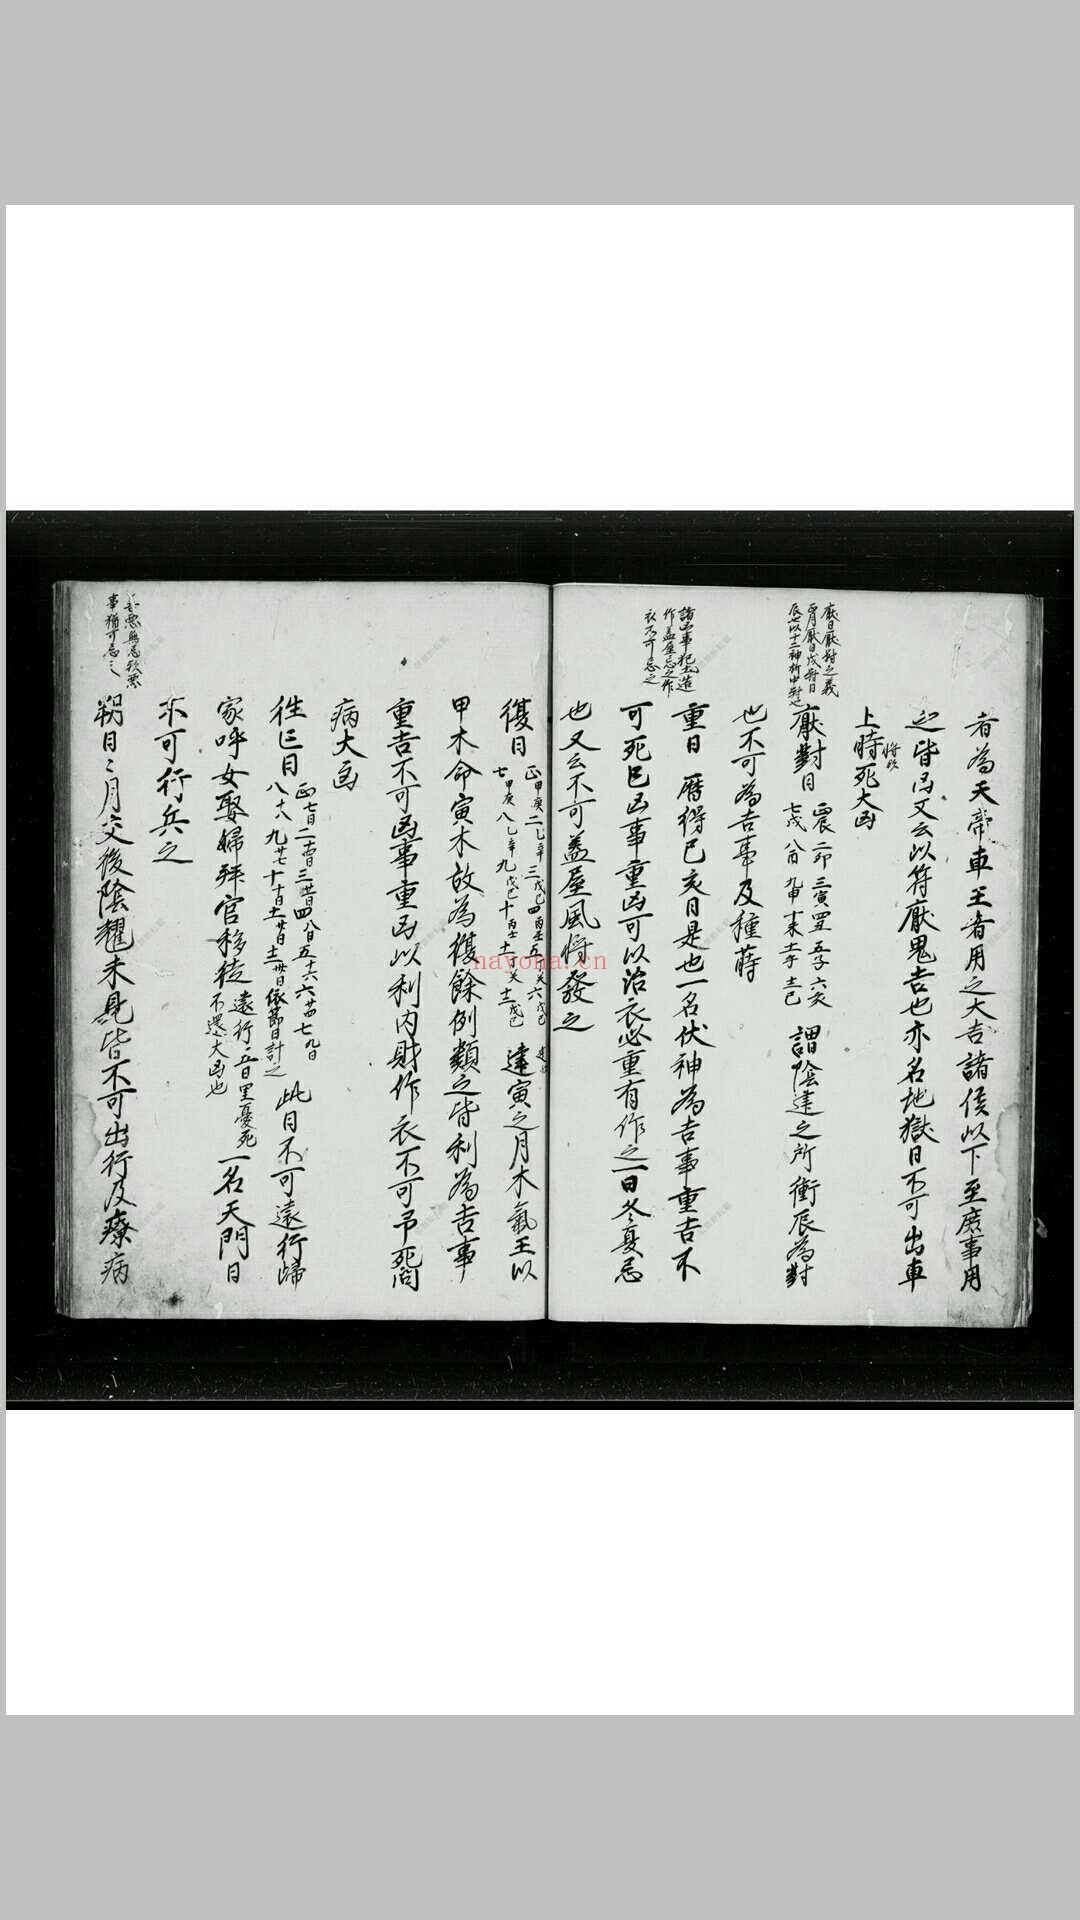 者為天帝車王者用之大吉諸侯以下至庶事用
之皆凶又云以符厭鬼吉也亦名地獄日不可出車
上時死大凶
厭日厭對之義
正月厭日戌對日
辰也以十二神行中對也
厭對日
正辰 二卯 三寅 四丑 五子 六亥
七戌 八酉 九申 十未 十一午 十二巳
謂陰建之所衝辰為對
也不可為吉事及種蒔
諸凶事犯土造
作盖屋忌之作
衣不可忌之
重日 暦得巳亥日是也一名伏神為吉事重吉不
可死巳凶事重凶可以治衣必重有作之一曰冬夏忌
也又云不可盖屋風将發之
復日
正甲庚 二乙辛 三戊己 四丙壬 五丁癸 六戊己
七甲庚 八乙辛 九戊己 十丙壬 十一丁癸 十二戊己
建寅之月木氣王以
甲木命寅木故為復餘例類之皆利為吉事
重吉不可凶事重凶以利内財作衣不可弔死問
病大凶
往亡日
正七日 二十四日 三廿一日 四八日 五十六 六廿四 七九日
八十八 九廿七 十十日 十一廿日 十二卅日依節日計之
此日不可遠行歸
家呼女娶婦拜官移徙
遠行一百里憂死
不還大凶也
一名天門日
不可行兵之
事猶可忌之
朔日〻月交後陰耀未見皆不可出行及療病
nayona.cn